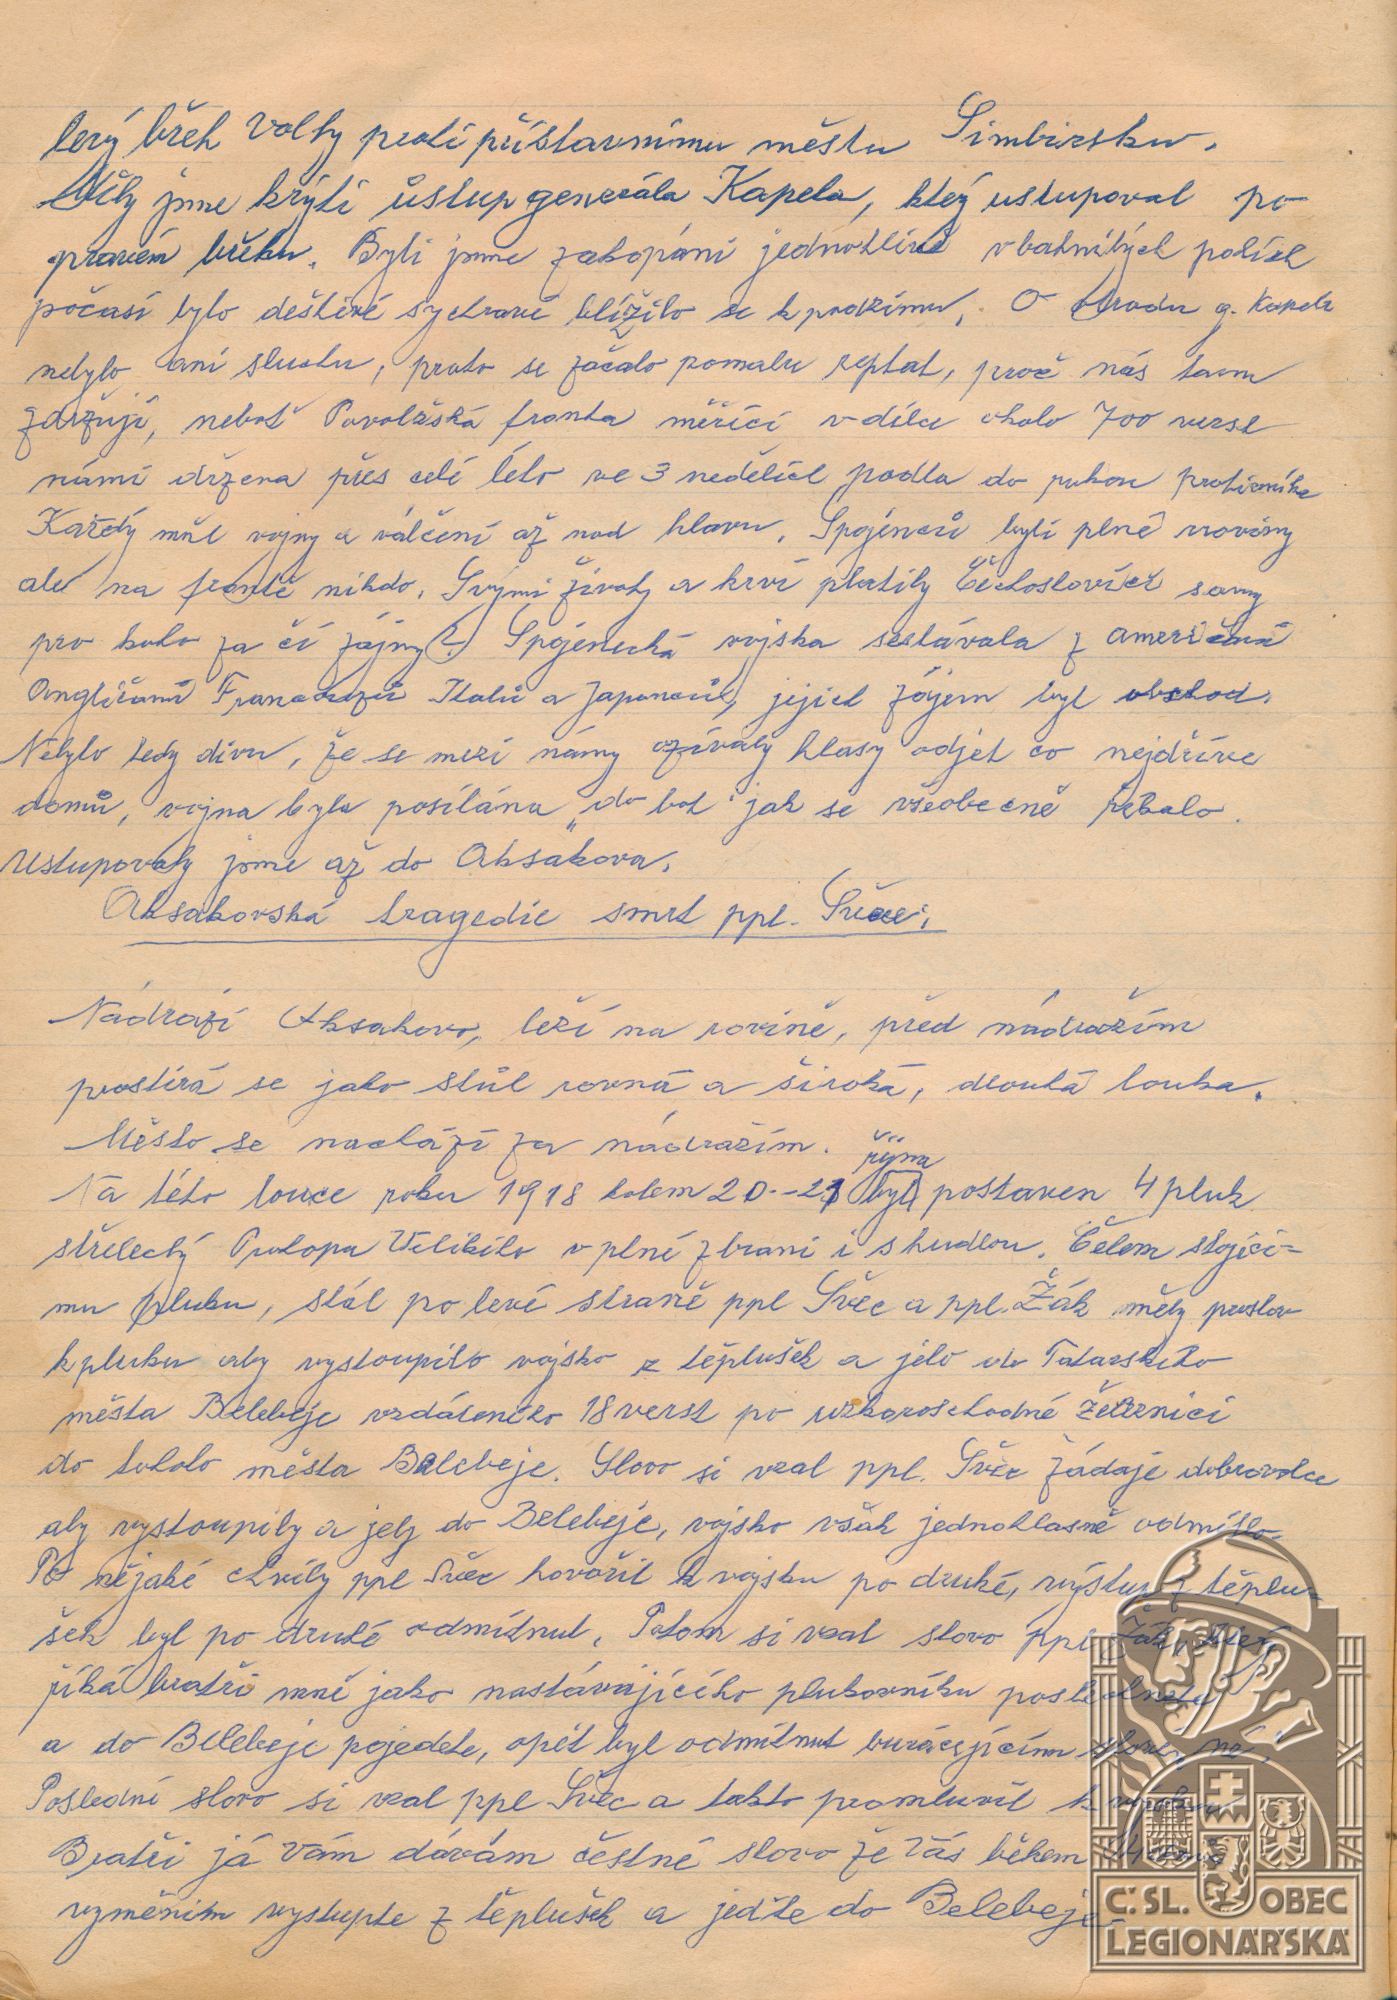 levý břeh Volhy proti přístavnímu městu Simbirsku.
Měly jsme krýti ůstup generála Kapela, ktey ustupoval po
pravém břehu. Byli jsme zakopáni jednotlivě v bahnitých polích
počasí bylo deštivé sychravé blížilo se k podzimu. O odrodu g. Kapela
nebylo ani sluchu, proto se začalo pomalu reptat, proč nás tam
zdržují, neboť Povolžská fronta měřící v délce okolo 700 verst
námi držena přes celé léto ve 3 nedělích padla do rukou protivníka
Každý měl vojny a válčení až nad hlavu. Spojenců byli plné noviny
ale na frontě nikdo. Svými životy a krví platily Čechoslováci samy
pro koho za čí zájmy?. Spojenecká vojska sestávala z američanů
Angličanů Francouzů Italů a Japonců, jejich zájem byl obchod.
Nebylo tedy divu, že se mezi námy ozívaly hlasy odjet co nejdříve
domů, vojna byla posílána „do bot" jak se všeobecně řékalo.
Ustupovaly jsme až do Aksakova.
Aksakovská tragedie smrt ppl. Švece.
Nádraží Aksakovo, leží na rovině, před nádražím
prostírá se jako stůl rovná a široká, dlouhá louka.
Město se nachází za nádražím.
října
Na této louce roku 1918 kolem 20.-21 byl postaven 4 pluk
střelecký Prokopa Velikého v plné zbrani i s hudbou. Čelem stojící-
mu pluku, stál po levé straně ppl Švec a ppl. Žák měly proslov
k pluku aby vystoupilo vojsko z těplušek a jelo do Tatarského
města Belebeje vzdáleného 18 verst po úzkorozchodné železnici
do tohoto města Belebeje. Slovo si vzal ppl. Švec žádaje dobrovolce
aby vystoupily a jely do Belebeje, vojsko však jednohlasně odmítlo.
Po nějaké chvíly ppl Švec hovořil k vojsku po druhé, výstup z těplu-
šek byl po druhé odmítnut. Potom si vzal slovo ppl Žák, který
říká bratři mně jako nastávajícího plukovníka poslechnete
a do Belebeje pojedete, opět byl odmítnut burácejícím slovem né!
Poslední slovo si vzal ppl Švec a takto promluvil k vojsku
Bratři já Vám dávám čestné slovo že Vás během
vyměním vystupte z těplušek a jeďte do Belebeje
Č. SL. OBEC
LEGIONÁŘSKÁ